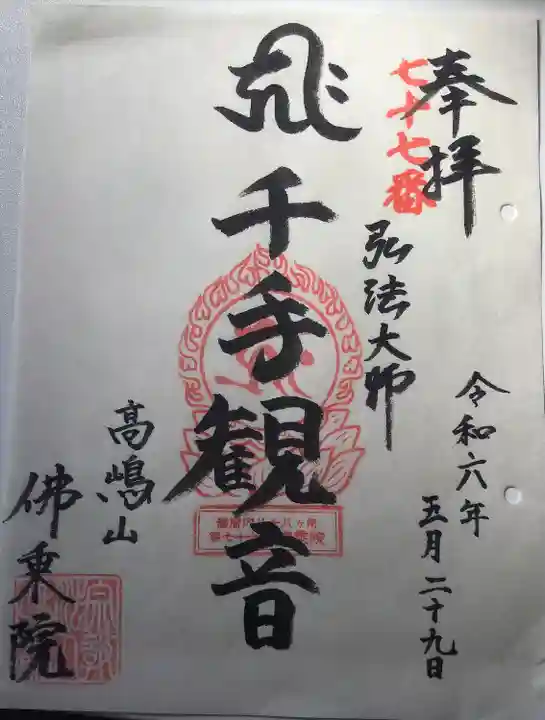 奉拝
七十七番
弘法大师
令和六年
五月二十九日
千手観音
高嶋山
佛乗院